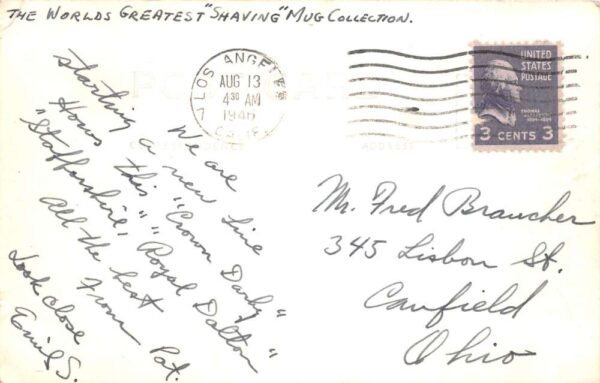 THE WORLDS GREATEST "SHAVING" MUG COLLECTION.
LOS ANGELES
AUG 13
4 30 AM
1946
UNITED
STATES
POSTAGE
THOMAS
3 CENTS 3
CORRESPONDENCE
ADDRESS
We are
starting a new line
Hows this "Crown Darby"
"Staffordshire" "Royal Dalton"
all the best
From Pat.
Look close
Emil S.
Mr. Fred Braucher
345 Lisbon St.
Canfield
Ohio